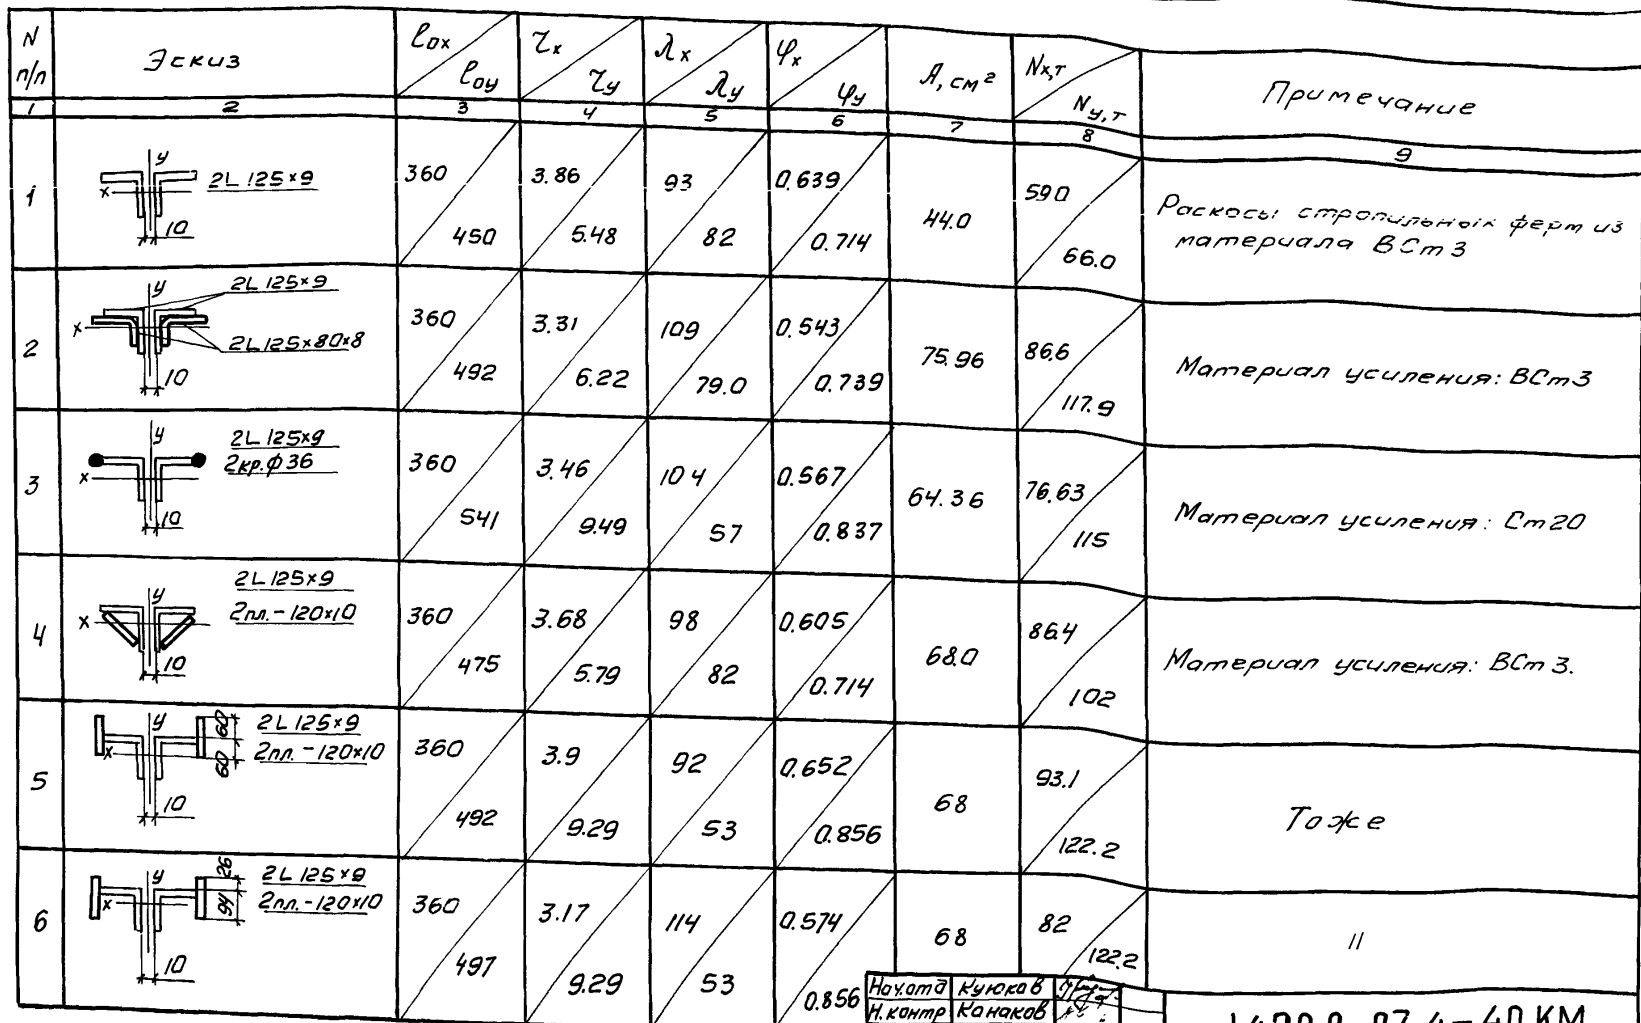 N п/п Эскиз lox loy rx ry λx λy φx φy A, см² Nx,т Ny,т Примечание
1 2 3 4 5 6 7 8 9
1 x y 2L 125×9 10 360 450 3.86 5.48 93 82 0.639 0.714 44.0 59.0 66.0 Раскосы стропильных ферм из
материала ВСт3
2 x y 2L 125×9 2L 125×80×8 10 360 492 3.31 6.22 109 79.0 0.543 0.739 75.96 86.6 117.9 Материал усиления: ВСт3
3 x y 2L 125×9 2кр.ф36 10 360 541 3.46 9.49 104 57 0.567 0.837 64.36 76.63 115 Материал усиления: Ст20
4 x y 2L 125×9 2пл.-120×10 10 360 475 3.68 5.79 98 82 0.605 0.714 68.0 86.4 102 Материал усиления: ВСт3.
5 x y 60 60 2L 125×9 2пл.-120×10 10 360 492 3.9 9.29 92 53 0.652 0.856 68 93.1 122.2 Тоже
6 x y 26 94 2L 125×9 2пл.-120×10 10 360 497 3.17 9.29 114 53 0.574 0.856 68 82 122.2 "
Нач.отд Куюков
Н.контр Канаков